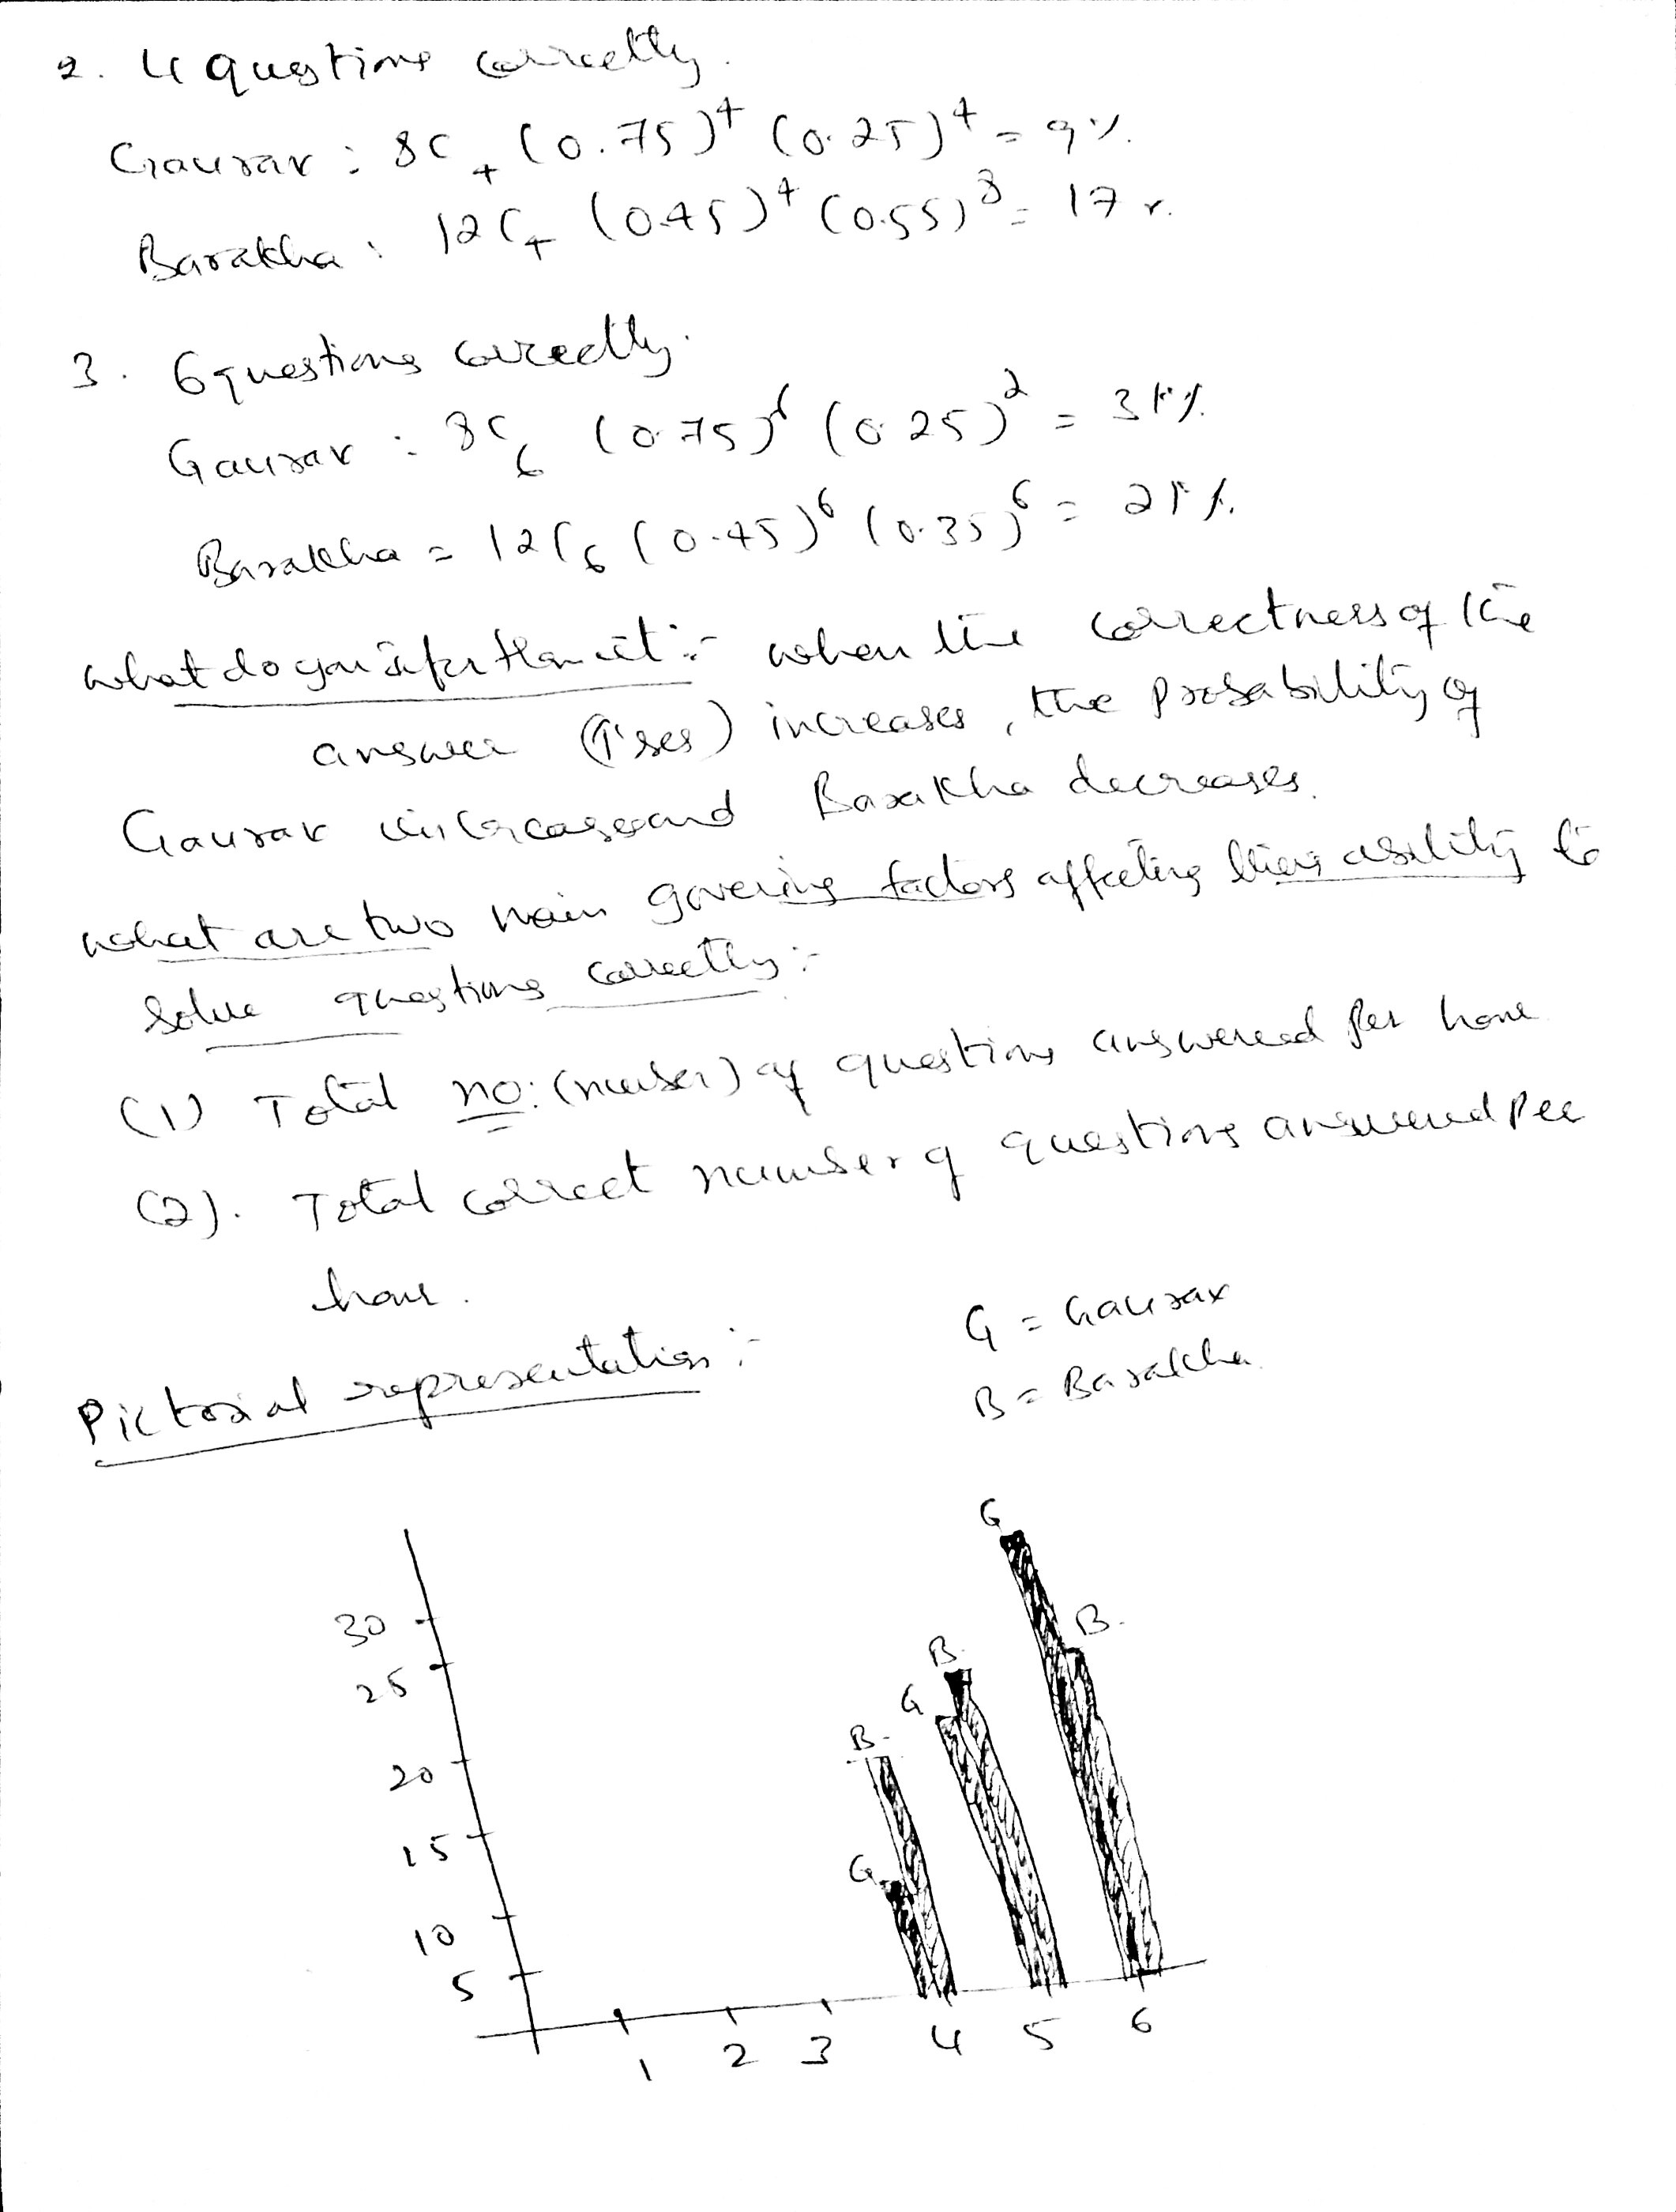 2. 4 questions correctly.
Gaurav : 8C4 (0.75)^4 (0.25)^4 = 9%.
Barakha : 12C4 (0.45)^4 (0.55)^8 = 17%.
3. 6 questions correctly.
Gaurav : 8C6 (0.75)^6 (0.25)^2 = 31%.
Barakha = 12C6 (0.45)^6 (0.35)^6 = 21%.
what do you infer from it :- when the correctness of the
answer (↑ses) increases, the probability of
Gaurav increases and Barakha decreases.
what are two main governing factors affecting their ability to
solve questions correctly :-
(1) Total no: (number) of questions answered per hour
(2). Total correct number of questions answered per
hour.
G = Gaurav
B = Barakha.
Pictorial representation :-
G
B.
30
B.
25
G
B.
20
15
G
10
5
1 2 3 4 5 6